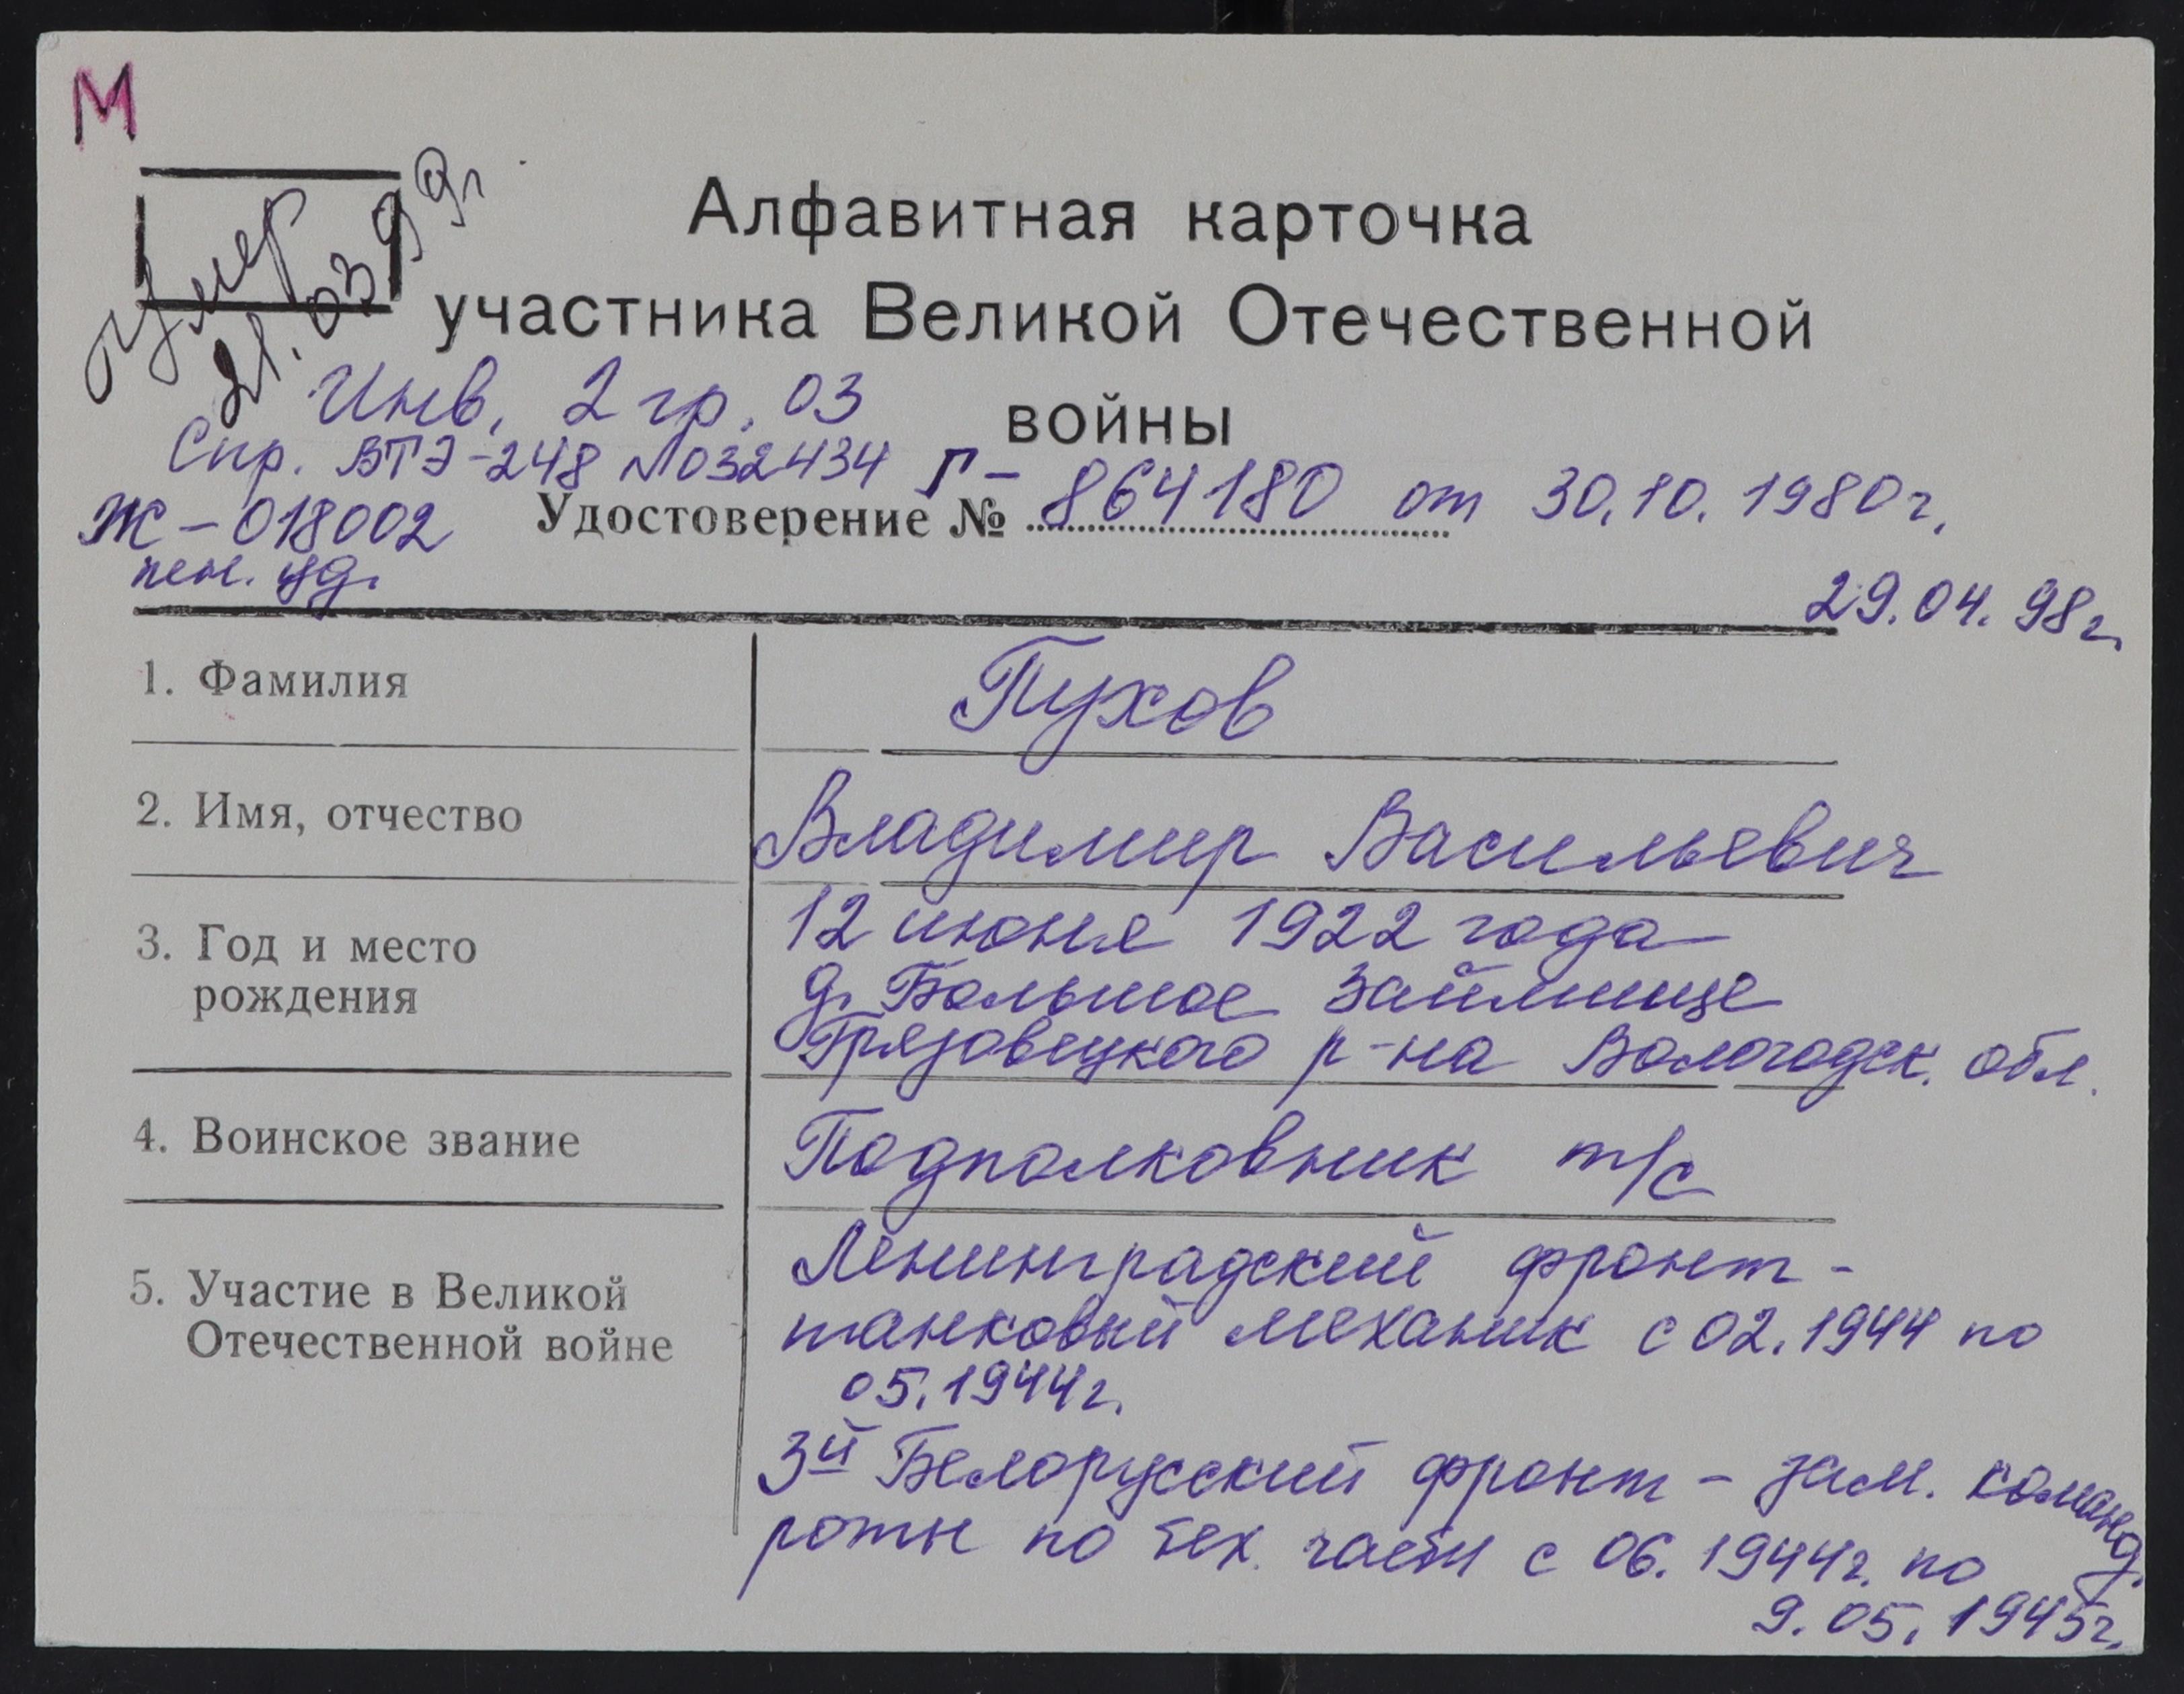 М
умер
21.03.99г
Алфавитная карточка
участника Великой Отечественной
войны
Инв. 2 гр. ОЗ
Спр. ВТЭ-248 №032434
Ж-018002
пен. уд.
Г-
Удостоверение № 864180 от 30.10.1980г.
29.04.98г.
1. Фамилия
Пухов
2. Имя, отчество
Владимир Васильевич
3. Год и место
рождения
12 июня 1922 года
д. Большое Займище
Грязовецкого р-на Вологодск. обл.
4. Воинское звание
Подполковник т/с
5. Участие в Великой
Отечественной войне
Ленинградский фронт -
танковый механик с 02.1944 по
05.1944г.
3й Белорусский фронт - зам. команд.
роты по тех. части с 06.1944г. по
9.05.1945г.